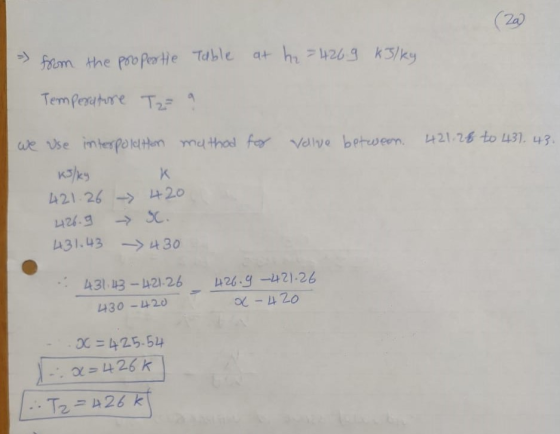 (2a)
⇒ from the propertie Table at h₂ = 426.9 KJ/kg
Temperature T₂ = ?
we use interpolation muthod for valive between 421.26 to 431.43.
KJ/kg K
421.26 → 420
426.9 → x.
431.43 → 430
∴ (431.43 - 421.26)/(430 - 420) = (426.9 - 421.26)/(x - 420)
x = 425.54
∴ x = 426 K
∴ T₂ = 426 K